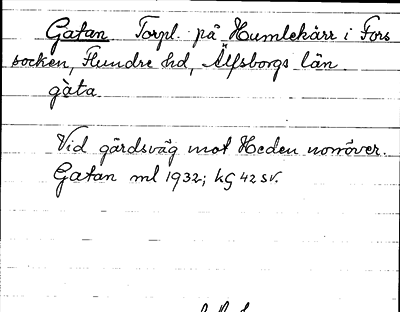 Gatan Torpl. på Humlekärr i Fors
socken, Flundre hd, Älfsborgs län.
gàta
Vid gårdsväg mot Heden norröver.
Gatan ml 1932; kG 42 SV.